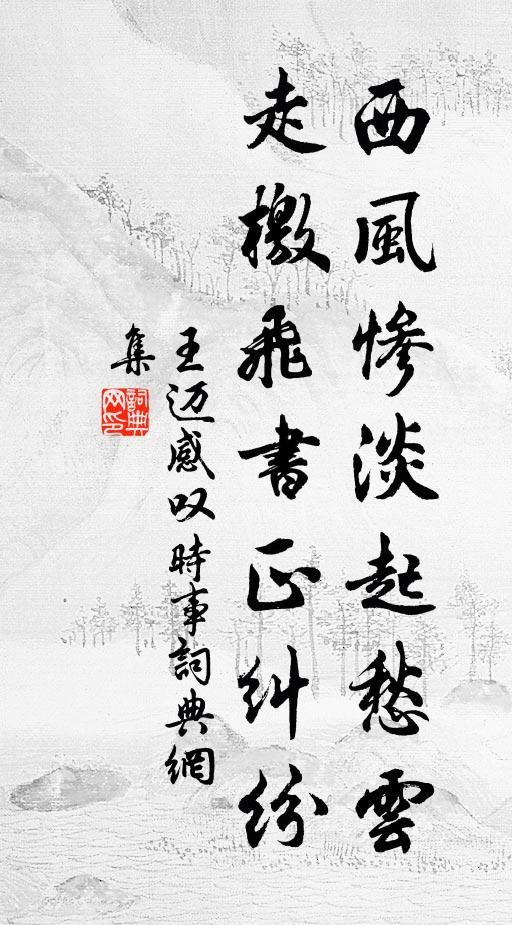 西風慘淡起愁雲
走檄飛書正糾紛
王迈感叹時事詞典網
集
詞典网印